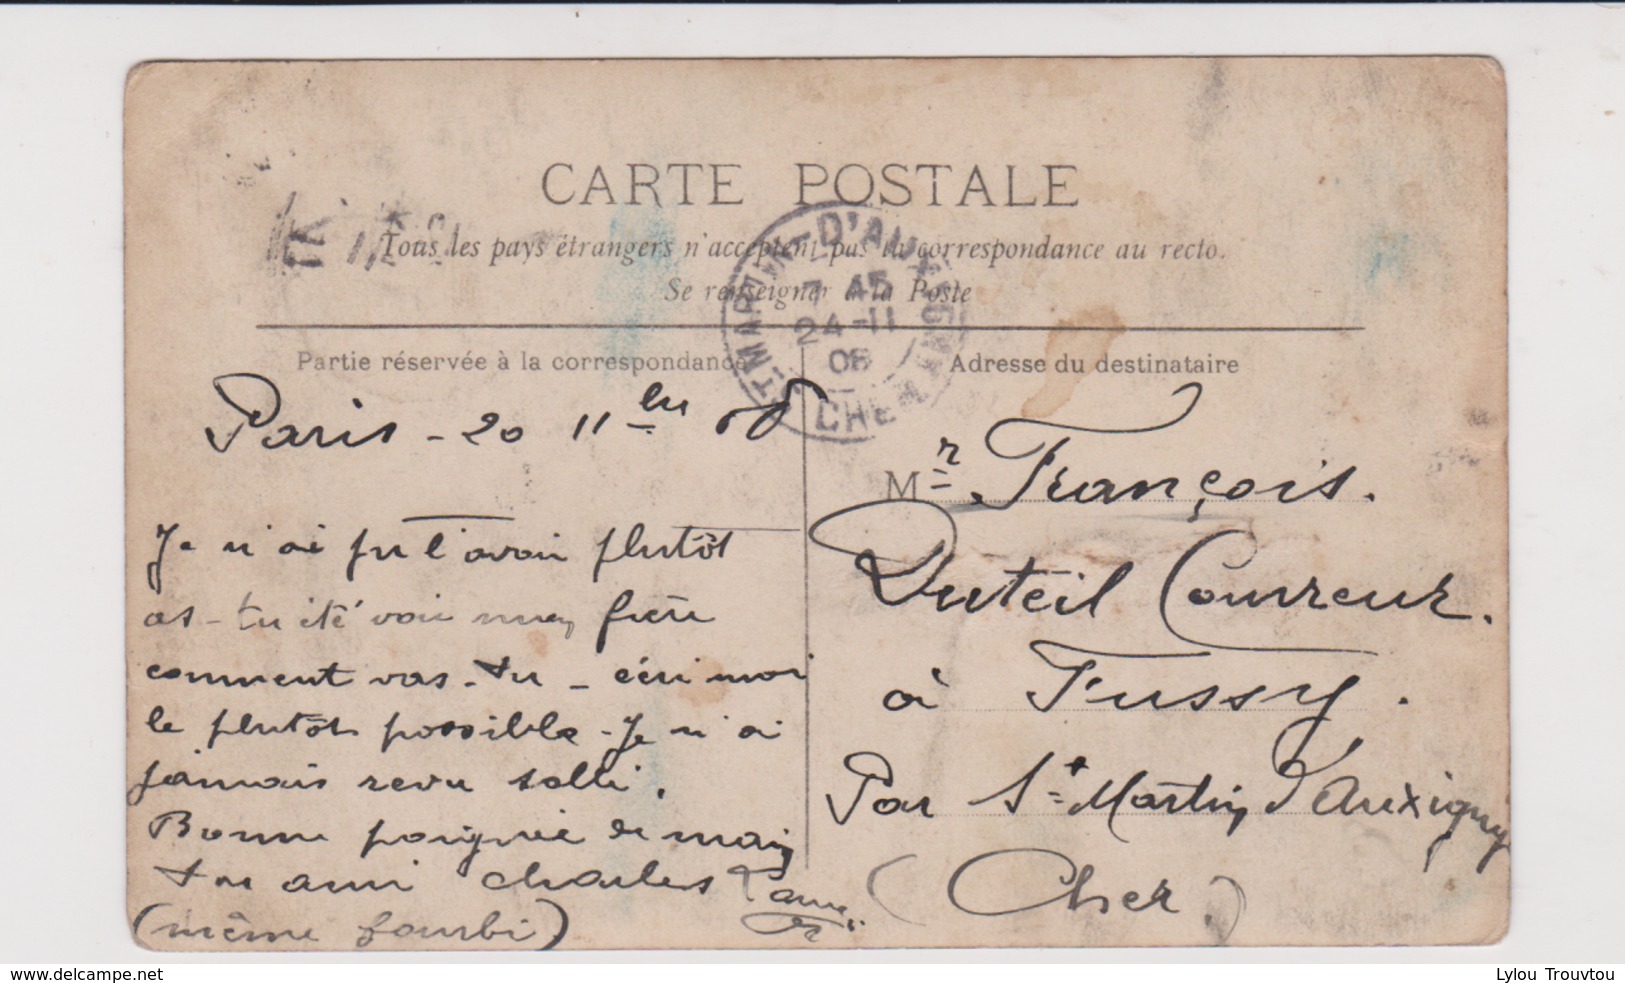 CARTE POSTALE
Tous les pays étrangers n'acceptent pas la correspondance au recto.
Se renseigner à la Poste
ST MARTIN-D'AUXIGNY
7 45
24-11
08
CHER
Partie réservée à la correspondance
Paris - 20 11bre 08
Je n'ai pu l'avoir plutôt
as-tu été voir mon frère
comment vas-tu - écri moi
le plutôt possible - Je n'ai
jamais revu
Bonne poignée de main
ton ami Charles
(même fourbi)
Adresse du destinataire
Mr François.
Duteil Couvreur.
à Fussy.
Par St Martin d'Auxigny
(Cher)
www.delcampe.net
Lylou Trouvtou